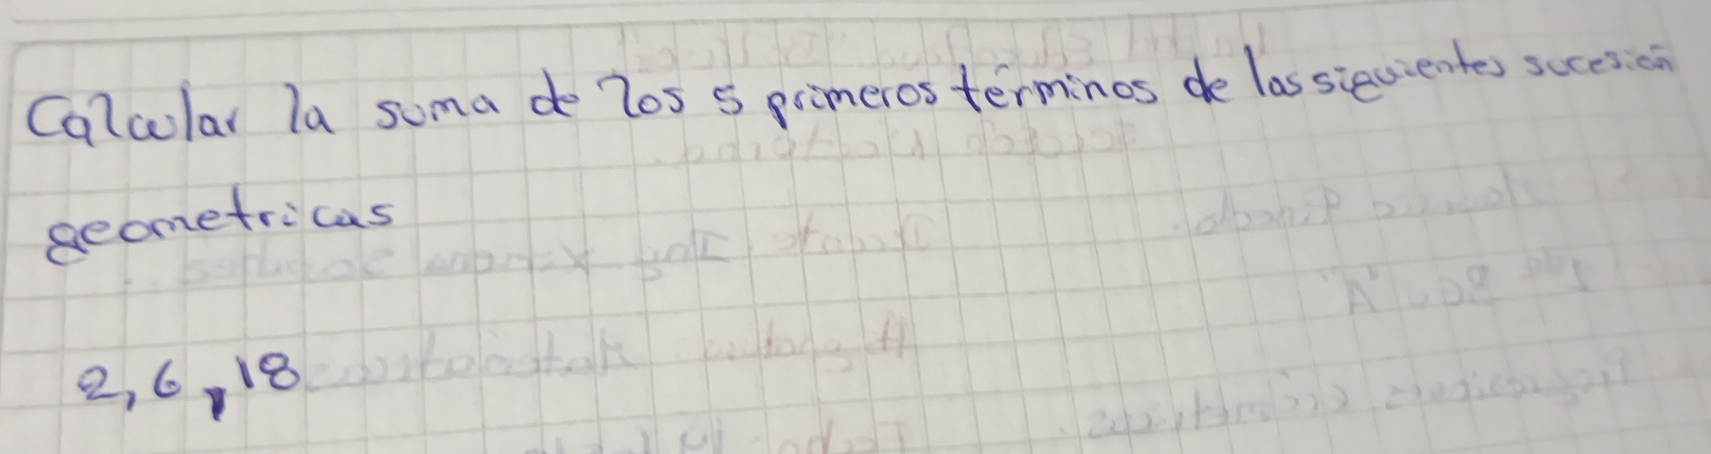 Calcular la suma de los 5 primeros términos de las siguientes sucesión
geometricas
2, 6, 18